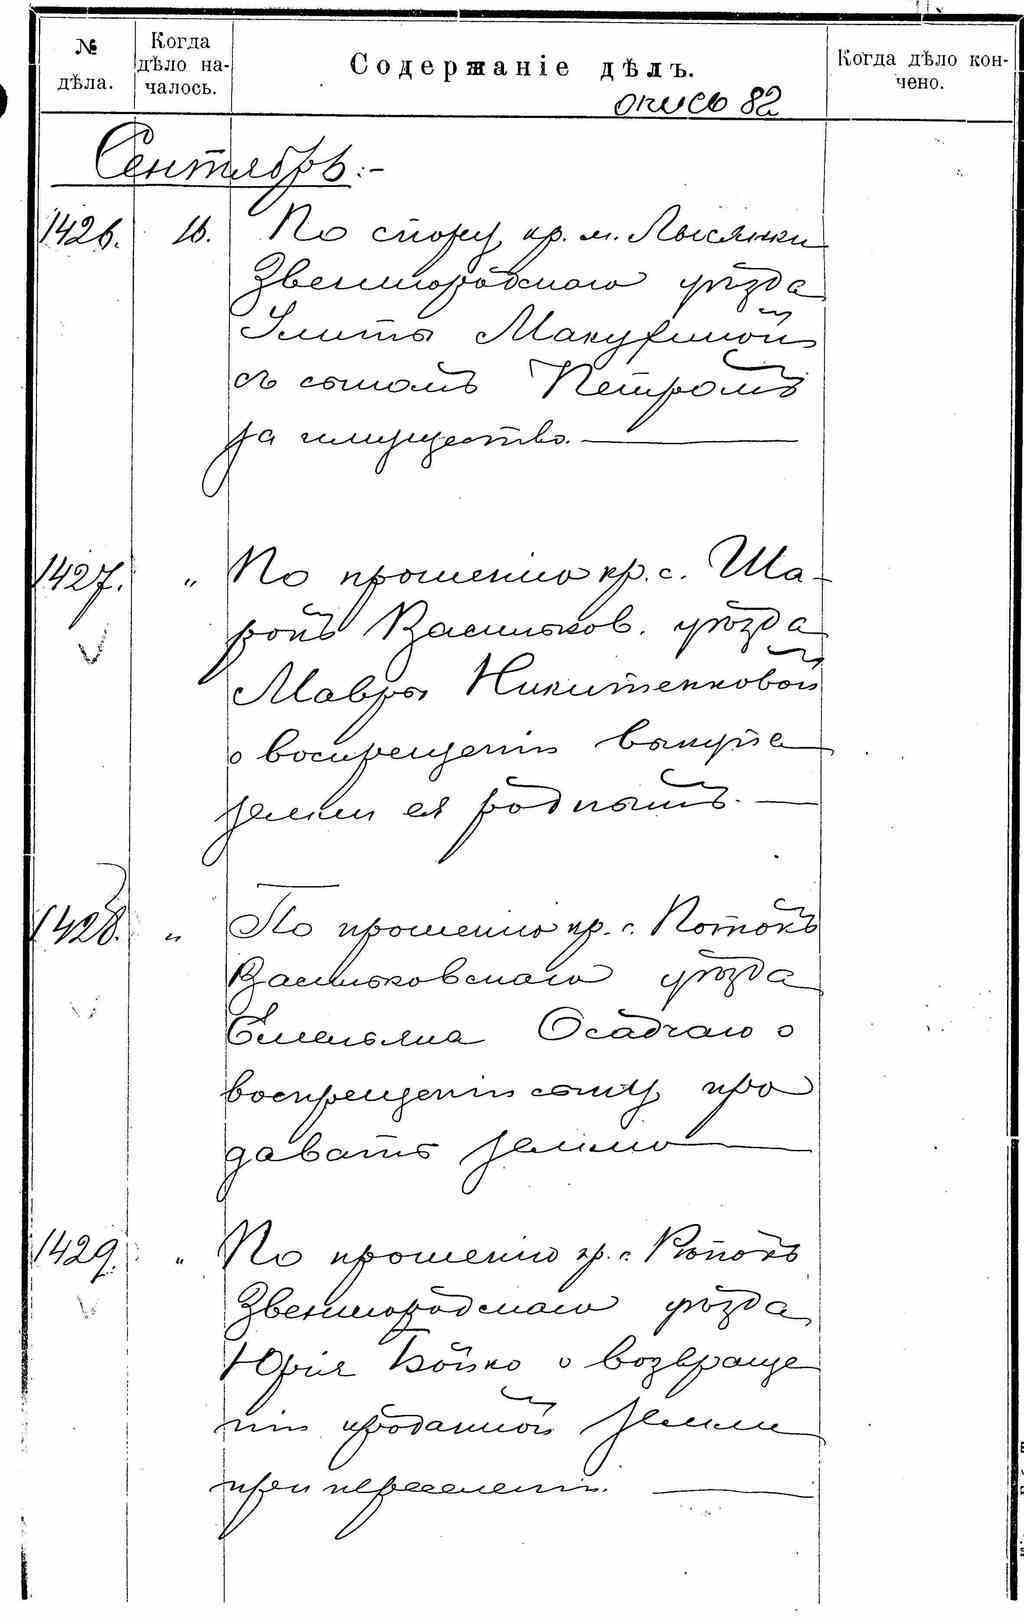 № дѣла.
Когда дѣло на-
чалось.
Содержаніе дѣлъ.
Когда дѣло кон-
чено.
опись 82
Сентябрь:-
1426. 16. По спору кр. м. Лысянки
Звенигородскаго уѣзда
Улиты Макухиной
съ сыномъ Петромъ
за имущество.
1427. " По прошенію кр. с. Ша-
рокъ Васильков. уѣзда
Мавры Никитенковой
о воспрещеніи выкупа
земли ея роднымъ.
1428. " По прошенію кр. с. Потокъ
Васильковскаго уѣзда
Емельяна Осадчаго о
воспрещеніи сыну про
давать землю
1429. " По прошенію кр. с.
Звенигородскаго уѣзда
Юрія Бойко о возвраще
ніи проданной земли
при переселеніи.